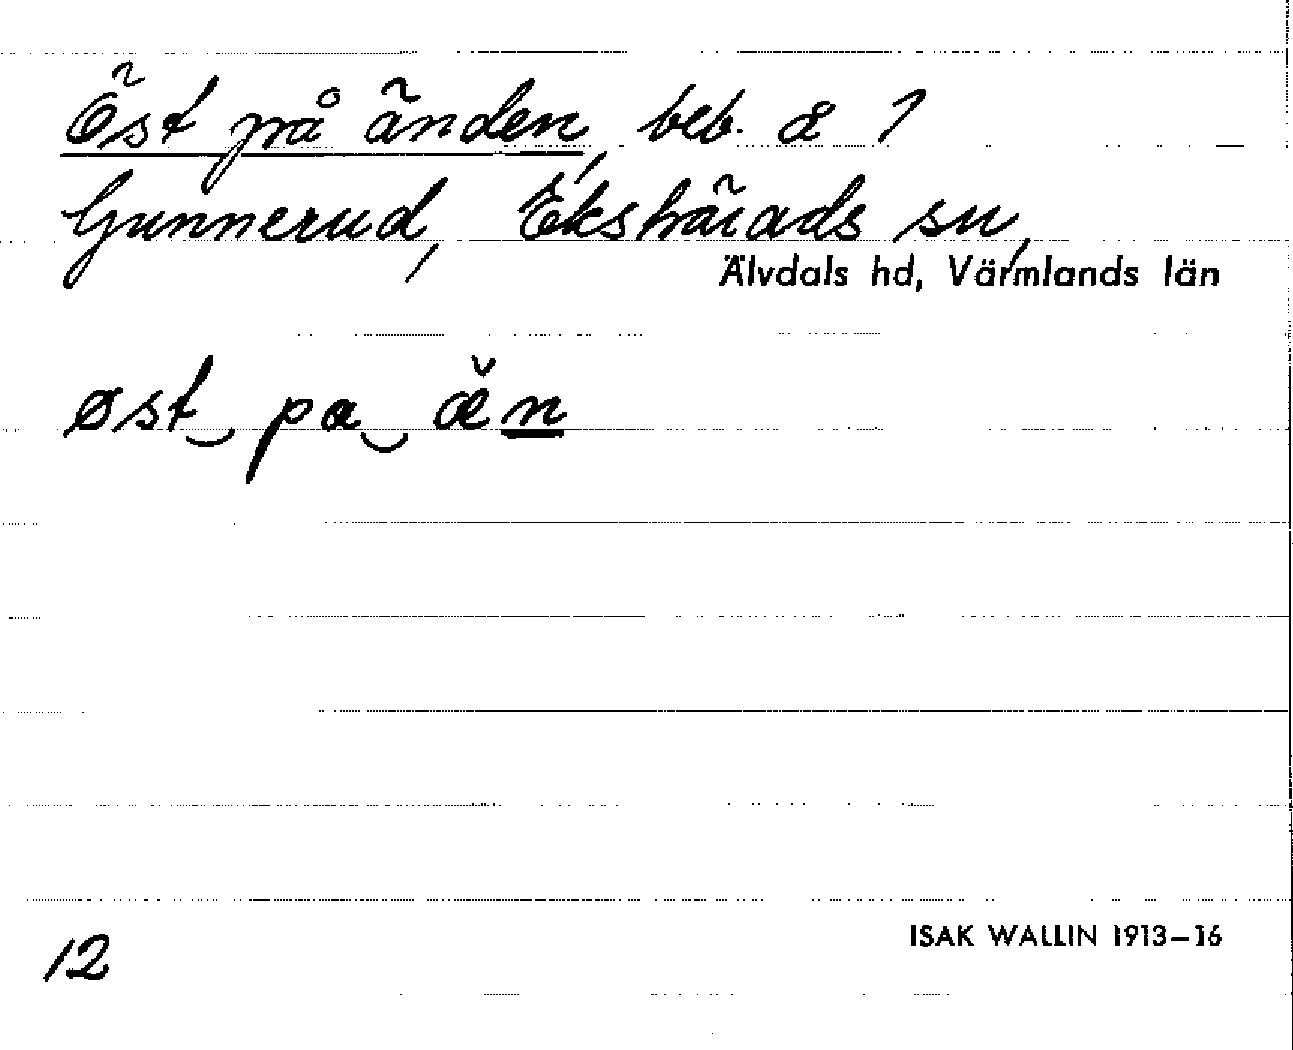 Öst på änden, beb. å 1
Gunnerud, Ekshärads sn,
Älvdals hd, Värmlands län
øst‿pa‿æ̌n
12
ISAK WALLIN 1913–16